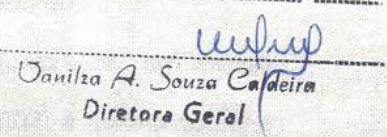 Vanilza A. Souza Caldeira
Diretora Geral